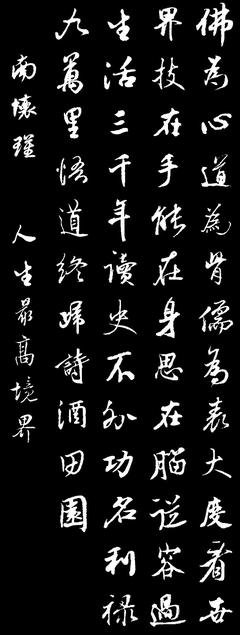 佛為心道為骨儒為表大度看世
界技在手能在身思在腦從容過
生活三千年讀史不外功名利祿
九萬里悟道終歸詩酒田園
南懷瑾 人生最高境界